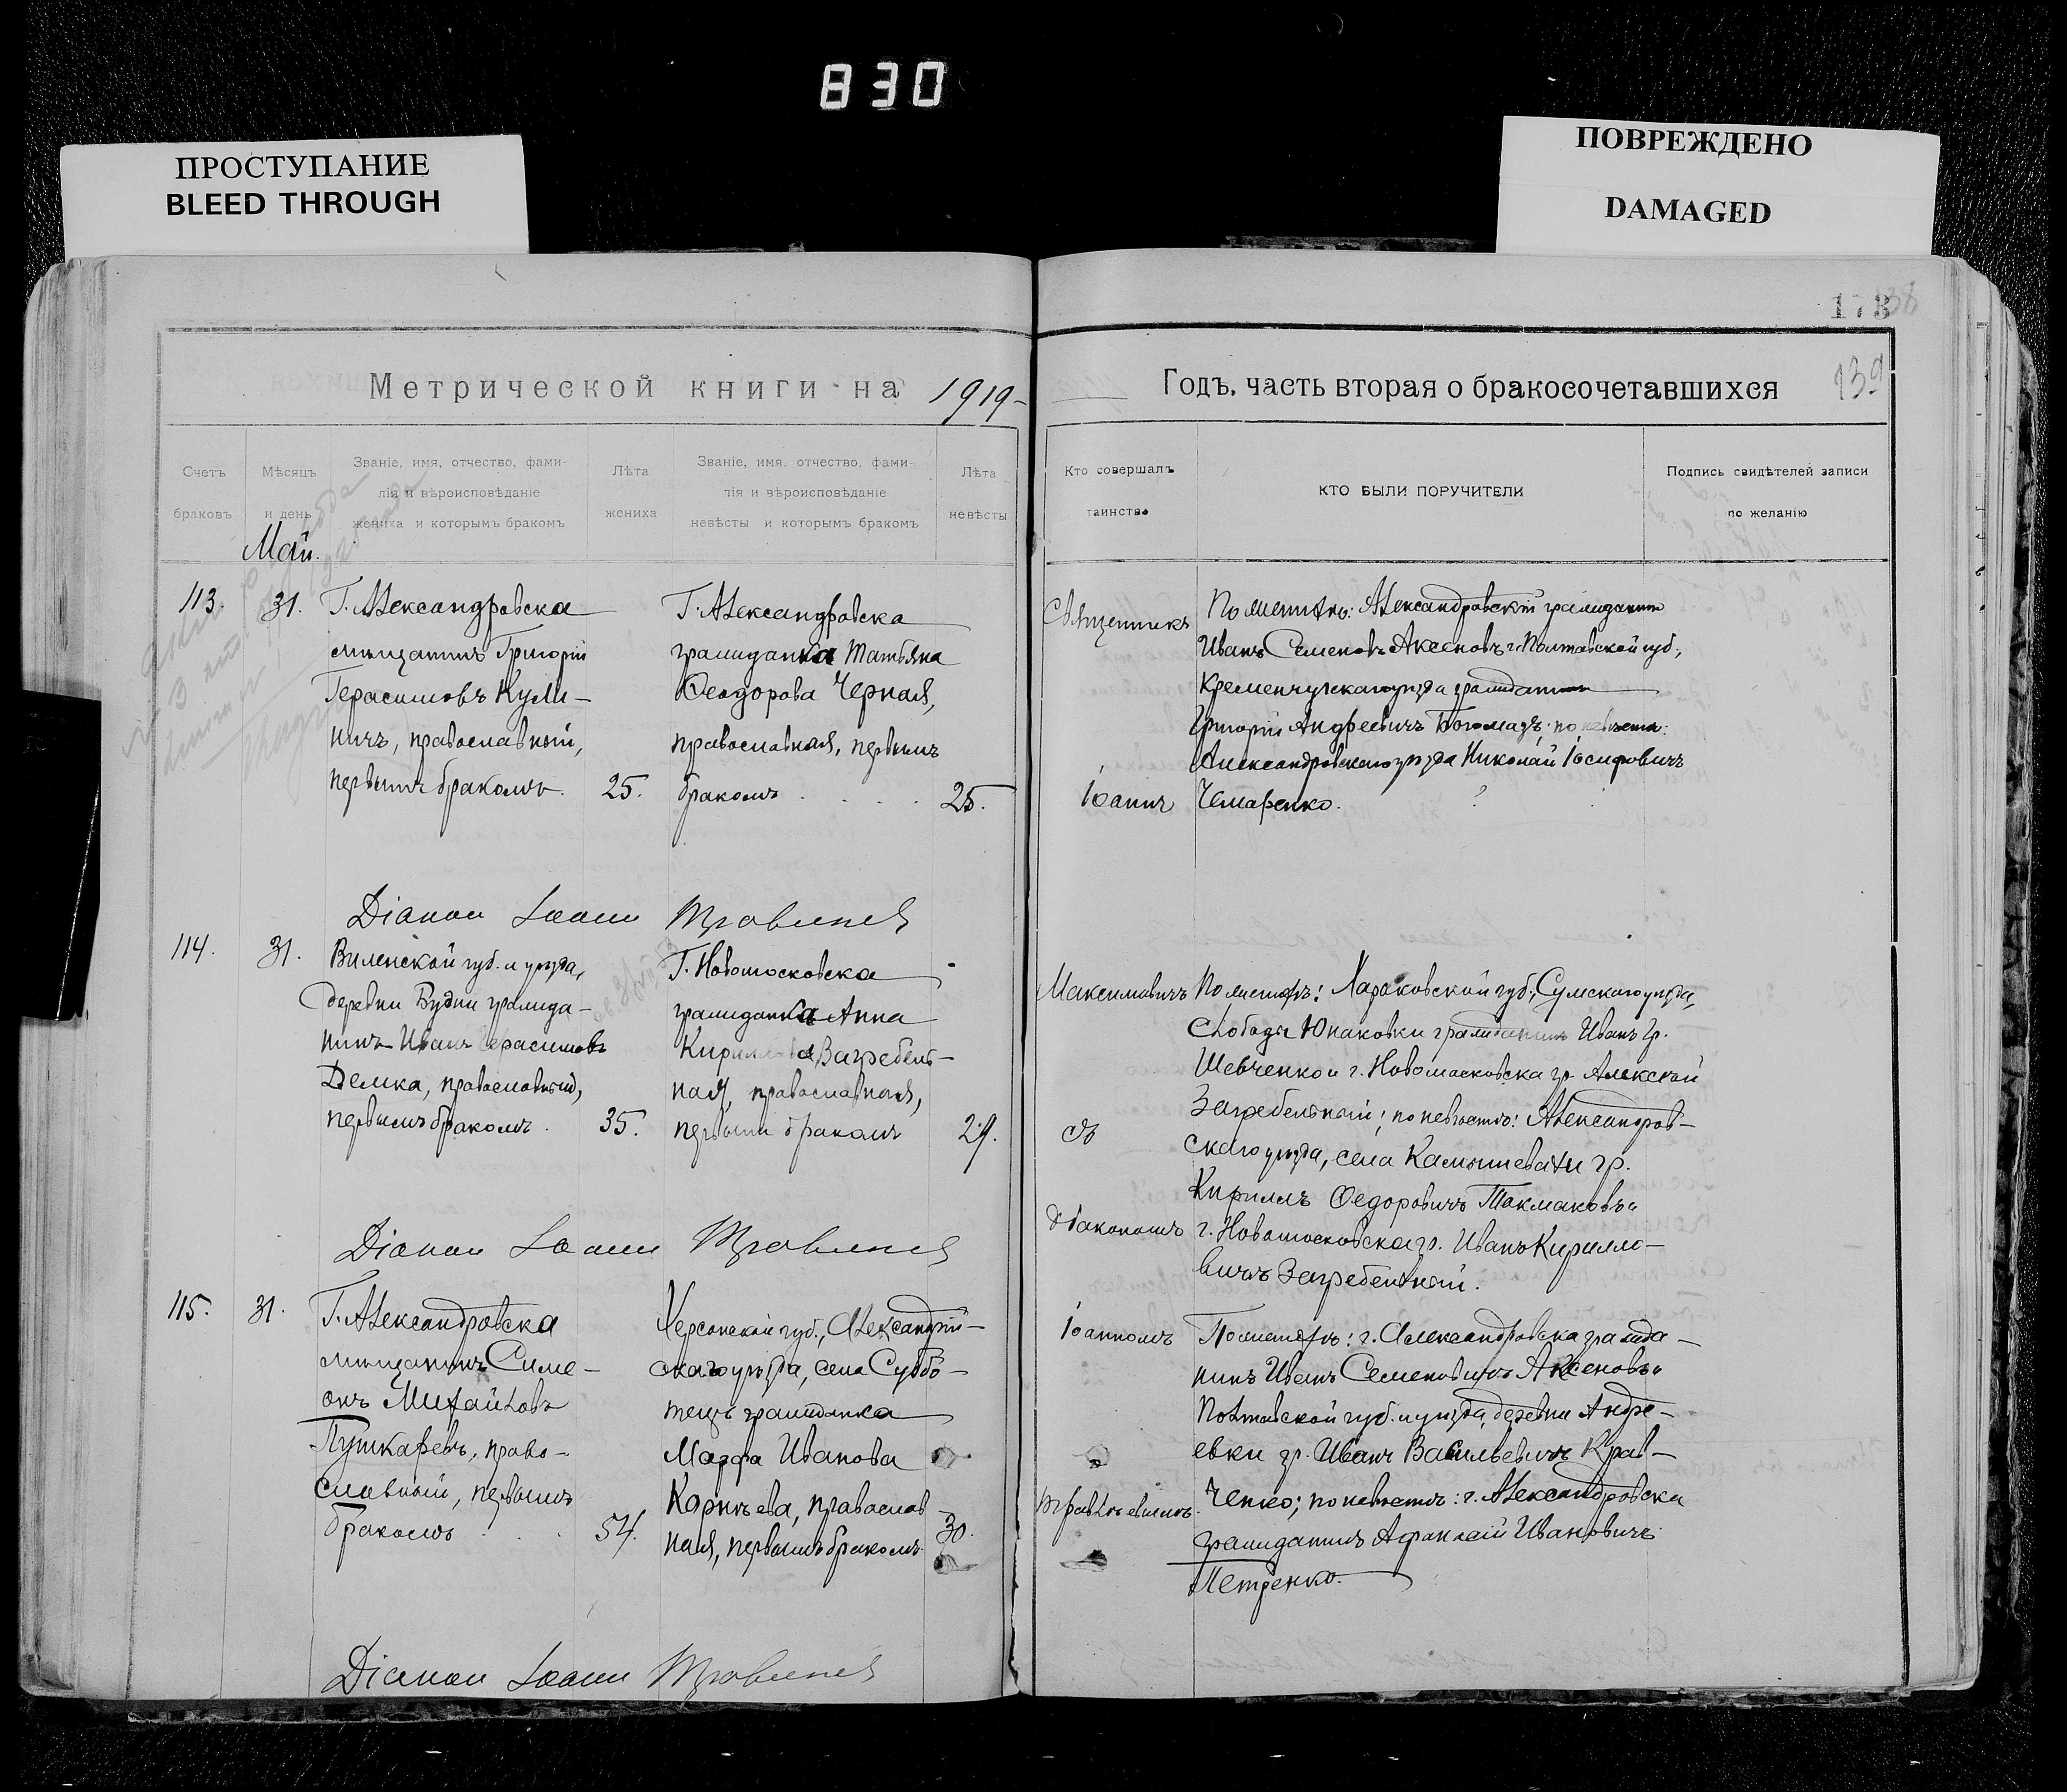 830
ПРОСТУПАНИЕ
BLEED THROUGH
ПОВРЕЖДЕНО
DAMAGED
Метрической книги на 1919
Счетъ браковъ
Мѣсяцъ и день
Званіе, имя, отчество, фами-
лія и вѣроисповѣданіе
жениха и которымъ бракомъ
Лѣта жениха
Званіе, имя, отчество, фами-
лія и вѣроисповѣданіе
невѣсты и которымъ бракомъ
Лѣта невѣсты
Май.
113.
31.
Г. Александровска
мѣщанинъ Григорій
Герасимовъ Кули-
ничъ, православный,
первымъ бракомъ.
25.
Г. Александровска
гражданка Татьяна
Ѳеодорова Черная,
православная, первымъ
бракомъ
25.
Діакон Іоанн
114.
31.
Виленской губ. и уѣзда,
деревни Будни гражда-
нинъ Иванъ Герасимовъ
Демка, православный,
первымъ бракомъ.
35.
Г. Новомосковска
гражданка Анна
Кириллова Загребель-
ная, православная,
первымъ бракомъ
29.
Діакон Іоанн
115.
31.
Г. Александровска
мѣщанинъ Симе-
онъ Михайловъ
Пушкаревъ, право-
славный, первымъ
бракомъ
54.
Херсонской губ., Александрій-
скаго уѣзда, села Суббо-
тецъ гражданка
Марфа Иванова
Корнѣева, православ
ная, первымъ бракомъ
30.
Діакон Іоанн
139
Годъ, часть вторая о бракосочетавшихся
Кто совершалъ таинство
КТО БЫЛИ ПОРУЧИТЕЛИ
Подпись свидѣтелей записи
по желанію
Священникъ
Іоаннъ
Максимовичъ
съ
діакономъ
Іоанномъ
По женихѣ: Александровскій гражданинъ
Иванъ Семеновъ Аксеновъ и Полтавской губ.,
Кременчугскаго уѣзда гражданинъ
Григорій Андреевичъ Богомазъ; по невѣстѣ:
Александровскаго уѣзда Николай Іосифовичъ
Чемаренко.
По женихѣ: Харьковской губ., Сумскаго уѣзда,
слободы Юнаковки гражданинъ Иванъ Гр.
Шевченко и г. Новомосковска гр. Алексѣй
Загребельный; по невѣстѣ: Александров-
скаго уѣзда, села Камышеватки гр.
Кириллъ Ѳедоровичъ Токмаковъ и
г. Новомосковска гр. Иванъ Кирилло-
вичъ Загребельный.
По женихѣ: г. Александровска гражда-
нинъ Иванъ Семеновичъ Аксеновъ и
Полтавской губ. и уѣзда, деревни Андре-
евки гр. Иванъ Васильевичъ Крав-
ченко; по невѣстѣ: г. Александровска
гражданинъ Афанасій Ивановичъ
Петренко.